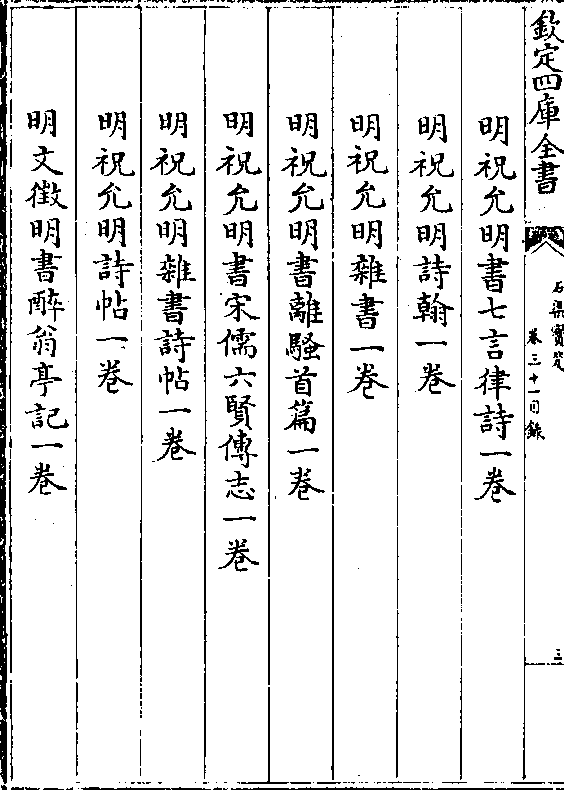 欽定四庫全書
石渠寶笈
卷三十一目錄
三
明祝允明書七言律詩一卷
明祝允明詩翰一卷
明祝允明雜書一卷
明祝允明書離騷首篇一卷
明祝允明書宋儒六賢傳志一卷
明祝允明雜書詩帖一卷
明祝允明詩帖一卷
明文徵明書醉翁亭記一卷